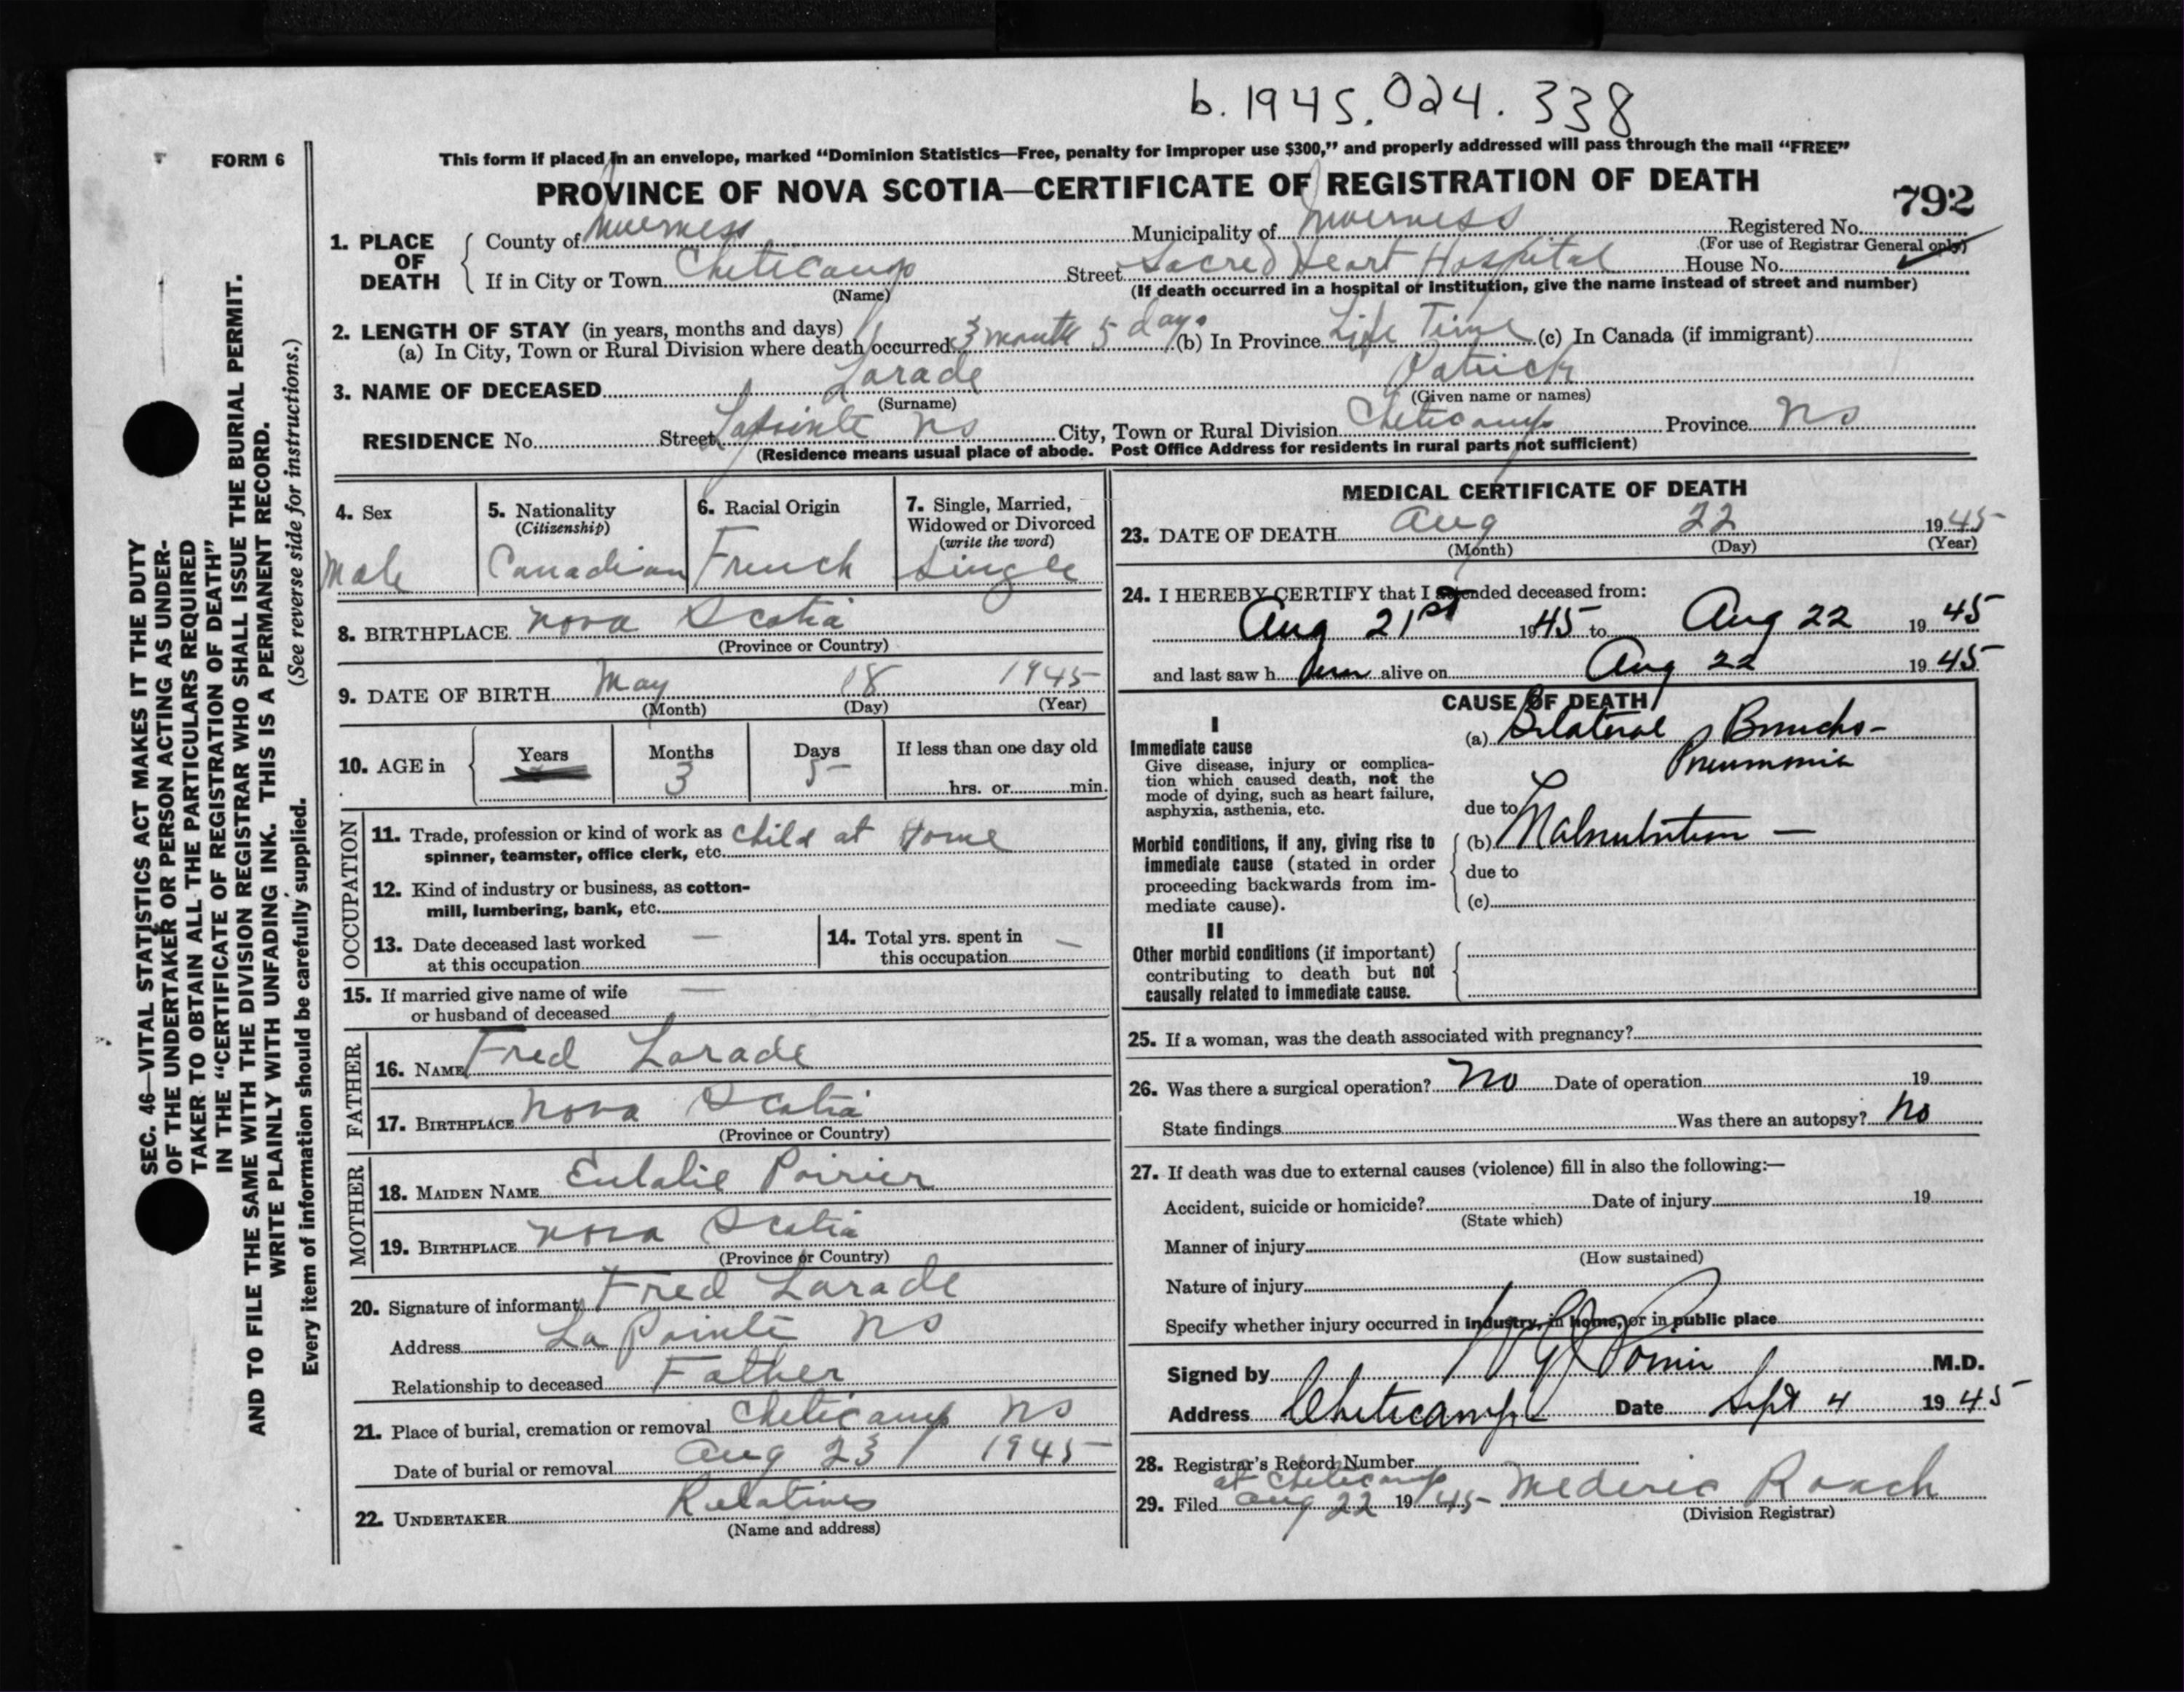 b. 1945. 024. 338
FORM 6
This form if placed in an envelope, marked “Dominion Statistics—Free, penalty for improper use $300,” and properly addressed will pass through the mail “FREE”
PROVINCE OF NOVA SCOTIA—CERTIFICATE OF REGISTRATION OF DEATH
792
1. PLACE OF DEATH
County of Inverness Municipality of Inverness Registered No.
(For use of Registrar General only)
If in City or Town Cheticamp Street Sacred Heart Hospital House No.
(Name) (If death occurred in a hospital or institution, give the name instead of street and number)
2. LENGTH OF STAY (in years, months and days)
(a) In City, Town or Rural Division where death occurred 3 month 5 days (b) In Province Life Time (c) In Canada (if immigrant)
3. NAME OF DECEASED Larade Patrick
(Surname) (Given name or names)
RESIDENCE No. Street Lapointe NS City, Town or Rural Division Cheticamp Province NS
(Residence means usual place of abode. Post Office Address for residents in rural parts not sufficient)
4. Sex
Male
5. Nationality
(Citizenship)
Canadian
6. Racial Origin
French
7. Single, Married,
Widowed or Divorced
(write the word)
Single
8. BIRTHPLACE Nova Scotia
(Province or Country)
9. DATE OF BIRTH May 18 1945
(Month) (Day) (Year)
10. AGE in
Years Months Days If less than one day old
3 5 hrs. or min.
OCCUPATION
11. Trade, profession or kind of work as child at Home
spinner, teamster, office clerk, etc.
12. Kind of industry or business, as cotton-
mill, lumbering, bank, etc.
13. Date deceased last worked —
at this occupation
14. Total yrs. spent in
this occupation —
15. If married give name of wife —
or husband of deceased
FATHER
16. NAME Fred Larade
17. BIRTHPLACE Nova Scotia
(Province or Country)
MOTHER
18. MAIDEN NAME Eulalie Poirier
19. BIRTHPLACE Nova Scotia
(Province or Country)
20. Signature of informant Fred Larade
Address La Pointe NS
Relationship to deceased Father
21. Place of burial, cremation or removal Cheticamp NS
Date of burial or removal Aug 23 1945
22. UNDERTAKER Relatives
(Name and address)
MEDICAL CERTIFICATE OF DEATH
23. DATE OF DEATH Aug 22 1945
(Month) (Day) (Year)
24. I HEREBY CERTIFY that I attended deceased from:
Aug 21st 1945 to Aug 22 1945
and last saw h him alive on Aug 22 1945
CAUSE OF DEATH
I
Immediate cause
Give disease, injury or complica-
tion which caused death, not the
mode of dying, such as heart failure,
asphyxia, asthenia, etc.
(a) Bilateral Broncho-
Pneumonia
due to
Morbid conditions, if any, giving rise to
immediate cause (stated in order
proceeding backwards from im-
mediate cause).
(b) Malnutrition —
due to
(c)
II
Other morbid conditions (if important)
contributing to death but not
causally related to immediate cause.
25. If a woman, was the death associated with pregnancy?
26. Was there a surgical operation? No Date of operation 19
State findings Was there an autopsy? No
27. If death was due to external causes (violence) fill in also the following:—
Accident, suicide or homicide? Date of injury 19
(State which)
Manner of injury
(How sustained)
Nature of injury
Specify whether injury occurred in industry, in home, or in public place
Signed by M.D.
Address Cheticamp Date Sept 4 1945
28. Registrar's Record Number
at Cheticamp
29. Filed Aug 22 1945 Mederic Roach
(Division Registrar)
SEC. 46—VITAL STATISTICS ACT MAKES IT THE DUTY
OF THE UNDERTAKER OR PERSON ACTING AS UNDER-
TAKER TO OBTAIN ALL THE PARTICULARS REQUIRED
IN THE “CERTIFICATE OF REGISTRATION OF DEATH”
AND TO FILE THE SAME WITH THE DIVISION REGISTRAR WHO SHALL ISSUE THE BURIAL PERMIT.
WRITE PLAINLY WITH UNFADING INK. THIS IS A PERMANENT RECORD.
(See reverse side for instructions.)
Every item of information should be carefully supplied.